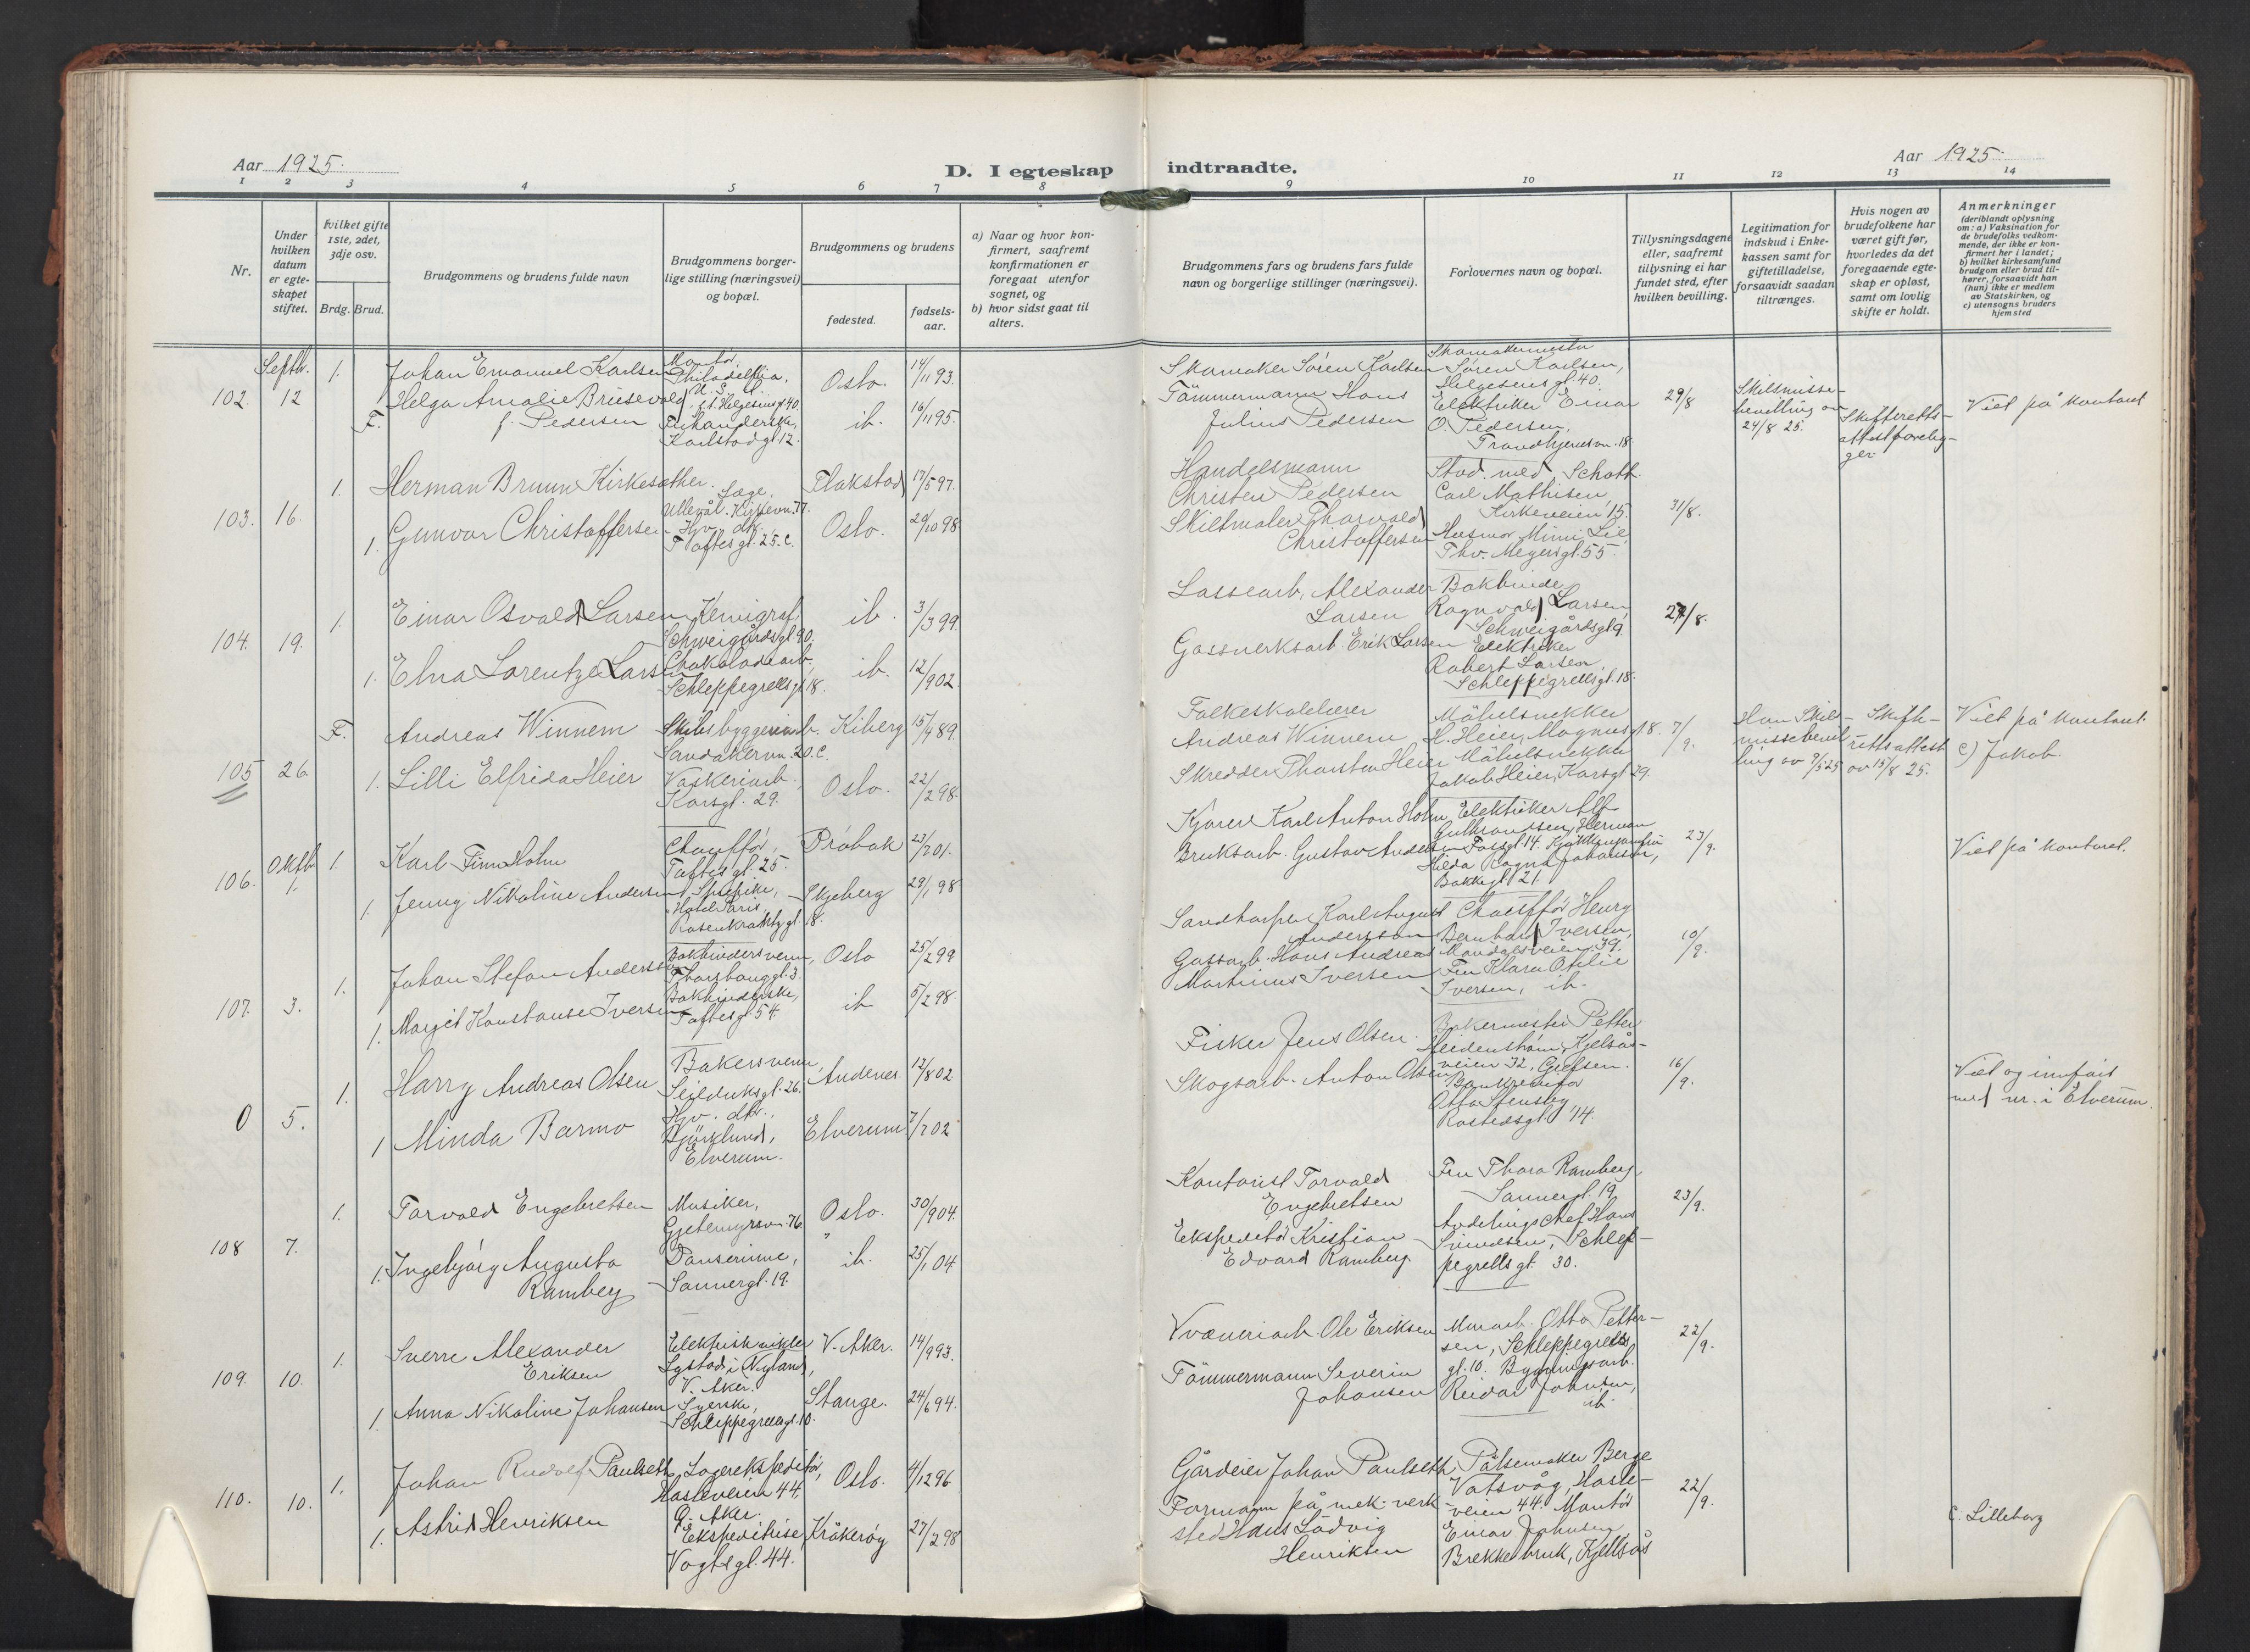 Aar 1925.
D. I egteskap indtraadte.
Aar 1925.
1 2 3 4 5 6 7 8 9 10 11 12 13 14
Nr.
Under hvilken datum er egteskapet stiftet.
hvilket gifte 1ste, 2det, 3dje osv.
Brdg. Brud.
Brudgommens og brudens fulde navn
Brudgommens borgerlige stilling (næringsvei) og bopæl.
Brudgommens og brudens
fødested.
fødselsaar.
a) Naar og hvor konfirmert, saafremt konfirmationen er foregaat utenfor sognet, og
b) hvor sidst gaat til alters.
Brudgommens fars og brudens fars fulde navn og borgerlige stillinger (næringsvei).
Forlovernes navn og bopæl.
Tillysningsdagene eller, saafremt tillysning ei har fundet sted, efter hvilken bevilling.
Legitimation for indskud i Enkekassen samt for giftetilladelse, forsaavidt saadan tiltrænges.
Hvis nogen av brudefolkene har været gift før, hvorledes da det foregaaende egteskap er opløst, samt om lovlig skifte er holdt.
Anmerkninger
(deriblandt oplysning om: a) Vaksination for de brudefolks vedkommende, der ikke er konfirmert her i landet; b) hvilket kirkesamfund brudgom eller brud tilhører, forsaavidt han (hun) ikke er medlem av Statskirken, og c) utensogns bruders hjemsted
Septbr.
102. 12
1. Johan Emanuel Karlsen
Montør, Philadelphia, U.S.A.
f.t. Helgesensgt 40
Oslo. 14/11 93.
F. Helga Amalie Brusevold
f. Pedersen
Karlstadgt. 12.
ib. 16/11 95.
Skomaker Søren Karlsen
Tømmermann Hans
Julius Pedersen
Skomakermester
Søren Karlsen,
Helgesens gt. 40.
Elektriker Einar
O. Pedersen,
Trondhjemsvn. 18.
29/8
Skilsmisse-
bevilling av
24/8 25.
Skifteretts-
attest forelig-
ger.
Viet på kontoret
103. 16.
1. Herman Bruun Kirkesæther.
Læge,
Ullevål. Kirkevn. 77.
Flakstad 17/5 97.
1. Gunvor Christoffersen
Hjv. dtr.
Toftesgt. 25.c.
Oslo. 20/10 98.
Handelsmann
Christen Pedersen
Skiltmaler Thorvald
Christoffersen
Stud. med. Schøtt
Carl Mathisen,
Kirkeveien 15.
Husmor Mimi Lie,
Thv. Meyersgt. 55.
31/8.
104. 19.
1. Einar Osvald Larsen
Kemigraf,
Schweigårdsgt. 90.
ib. 3/3 99.
1. Elna Lorentze Larsen
Chokoladearb.,
Schleppegrellsgt. 18.
ib. 12/9 02.
Lossearb. Alexander
Larsen
Gassverksarb. Erik Larsen
Bokbinder
Ragnvald Larsen,
Schweigårdsgt 9.
Elektriker
Robert Larsen,
Schleppegrellsgt. 18.
27/8.
105 26.
F. Andreas Winnem
Skibsbyggeriarb.
Sandakervn. 20.c.
Kiberg 15/4 89.
1. Lilli Elfrida Heier
Vaskeriarb.,
Korsgt. 29.
Oslo. 22/2 98.
Folkeskolelærer
Andreas Winnem
Skredder Thorsten Heier
Møbelsnekker
H. Heier, Magnusgt 8.
Møbelsnekker
Jakob Heier, Korsgt 29.
7/9.
Han Skils-
missebevil-
ling av 9/5 25
Skifte-
rettsattest
av 15/8 25.
Viet på kontoret.
c) Jakob.
Oktbr.
106. 1.
1. Karl Finn Holm
Chauffør,
Toftes gt. 25.
Drøbak 23/7 01.
1. Jenny Nikoline Andersen
Hotel Paris,
Rosenkrantzgt. 18.
Skjeberg 29/1 98
Kjører Karl Anton Holm,
Bruksarb. Gustav Andersen
Elektriker Alf
Gulbrandsen, Herman
Fossgt. 14. Kjøkkenjomfru
Hilda Ragna Johansen,
Bakkegt. 21.
23/9.
Viet på kontoret.
107. 3.
1. Johan Stefan Andersson
Bokbindersvenn,
Thorshauggt. 3.
Oslo 25/2 99
1. Margit Konstanse Iversen
Bokbinderske,
Toftesgt 54.
ib 5/2 98.
Karl August
Andersson
Gassarb. Hans Andreas
Martinius Iversen
Chauffør Henry
Bernhard Iversen,
Maridalsveien 39.
Fru Klara Otilie
Iversen, ib.
10/9.
0 5.
1. Harry Andreas Olsen
Bakersvenn,
Seilduksgt. 26.
Andenes. 12/8 02
1 Minda Barmo
Hjv. dtr.,
Bjørklund,
Elverum.
Elverum 7/7 02
Fisker Jens Olsen.
Skogsarb. Anton Olsen
Bakermester Petter
Heidenstrøm, Kjelsås-
veien 32, Grefsen.
Bankrevisor
Otto Stensby,
Rostedsgt. 14.
16/9.
Viet og innført
med nr. i Elverum.
108 7.
1. Torvald Engebretsen
Musiker,
Gjetemyrsvn. 76.
Oslo. 30/9 04.
1. Ingebjørg Augusta
Ramberg
Danserinne,
Sannergt. 19.
ib. 25/1 04
Kontorist Torvald
Engebretsen
Ekspeditør Kristian
Edvard Ramberg.
Fru Thora Ramberg
Sannergt. 19.
Avdelingschef Hans
Svendsen, Schlep-
pegrells gt. 30.
23/9.
109. 10.
1. Sverre Alexander
Eriksen
Elektriskvikler
Lystad i Nyland,
V. Aker.
V. Aker. 14/9 93.
1. Anna Nikoline Johansen
Syerske,
Schleppegrellsgt. 10.
Stange. 24/6 94.
Væveriarb. Ole Eriksen
Tømmermann Severin
Johansen
Murarb. Otto Petter-
sen, Schleppegrells
gt. 10. Bygningsarb.
Reidar Johnsen,
ib.
22/9.
110. 10.
1. Johan Rudolf Paulseth
Lagerekspeditør,
Hasleveien 44.
Ø. Aker.
Oslo. 4/12 96
1. Astrid Henriksen
Ekspeditrise,
Vogtsgt. 44.
Kråkerøy 27/2 98
Gårdeier Johan Paulseth
Formann på mek. verk-
sted Hans Ludvig
Henriksen
Pølsemaker Berge
Vatsvåg, Hasle-
veien 44. Montør
Einar Johnsen,
Brekke bruk, Kjelsås
22/9.
C. Lilleborg